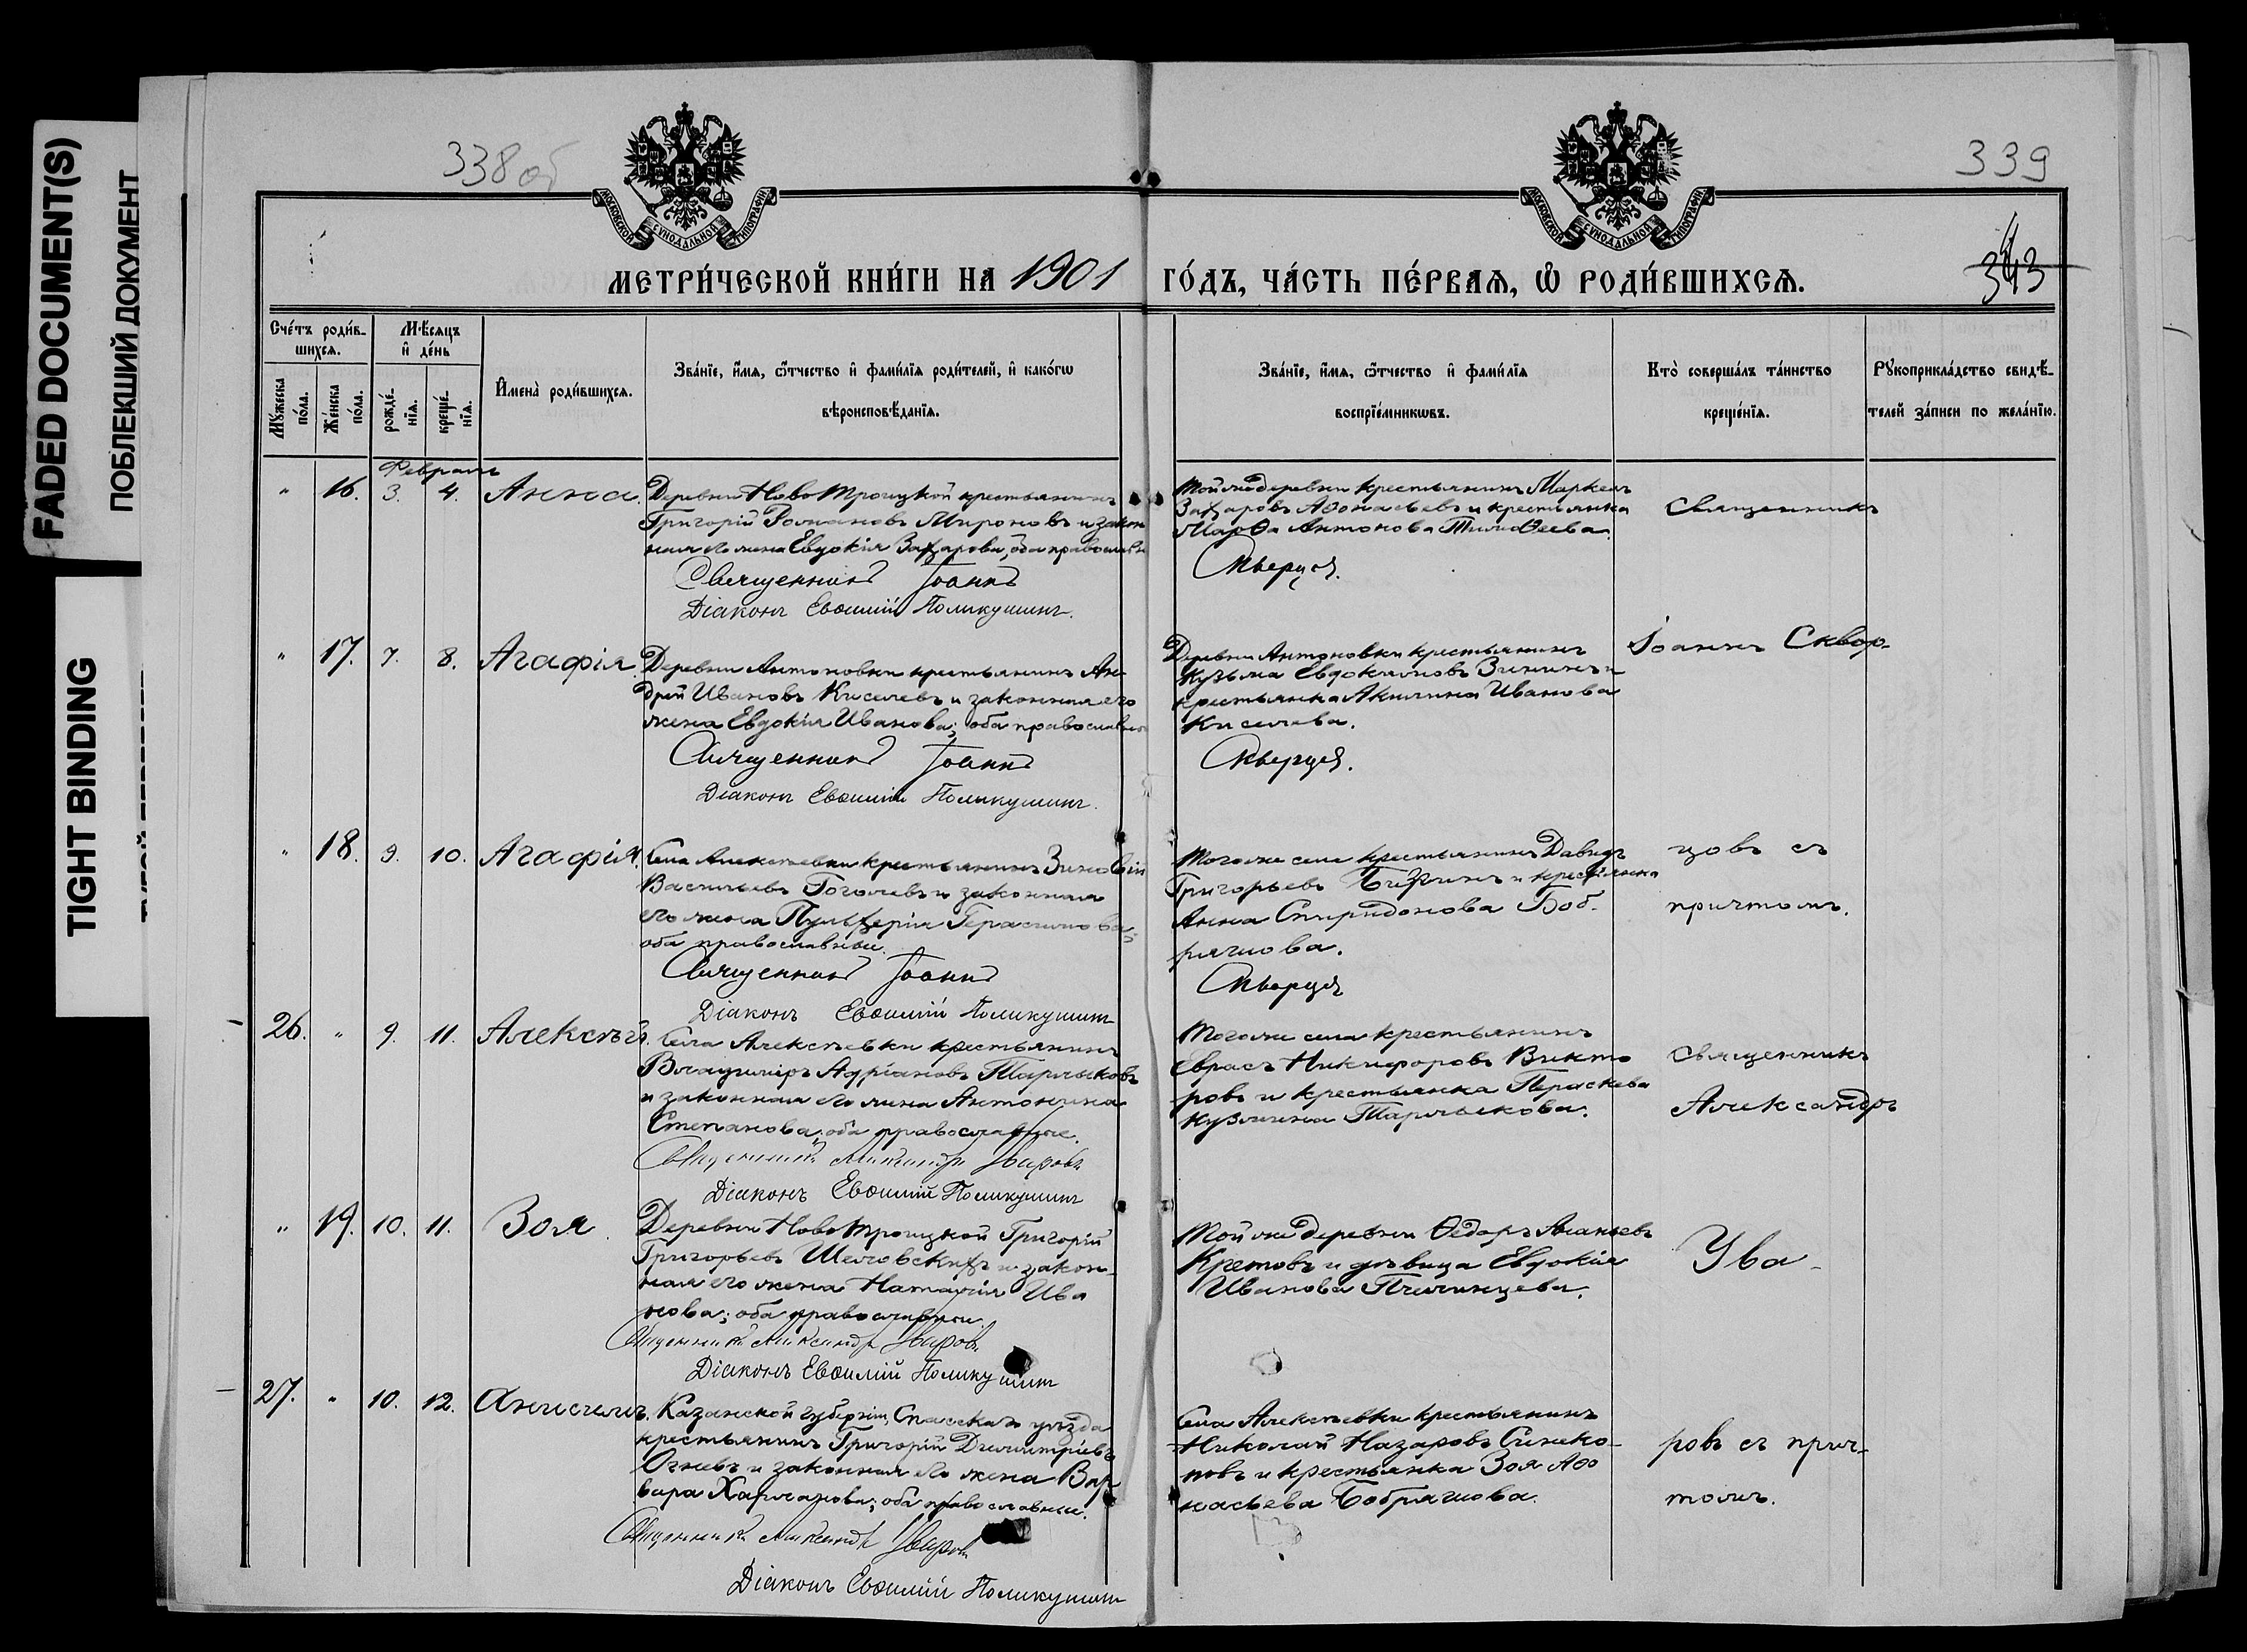 FADED DOCUMENT(S)
ПОБЛЕКШИЙ ДОКУМЕНТ
TIGHT BINDING
338 об
339
343
МОСКОВСКОЙ СѴНОДАЛЬНОЙ ТИПОГРАФІИ
МОСКОВСКОЙ СѴНОДАЛЬНОЙ ТИПОГРАФІИ
МЕТРИ́ЧЕСКОЙ КНИ́ГИ НА 1901 ГО́ДЪ, ЧА́СТЬ ПЕ́РВАѦ, Ѽ РОДИ́ВШИХСѦ.
Сче́тъ роди́в-
шихсѧ.
Мꙋ́жеска по́ла.
Же́нска по́ла.
Мѣ́сѧцъ
и҆ де́нь
рожде́-
нїѧ.
креще́-
нїѧ.
И҆мена̀ роди́вшихсѧ.
Зва́нїе, и҆́мѧ, ѻ҆́тчество и҆ фами́лїѧ роди́телей, и҆ како́гѡ
вѣроисповѣ́данїѧ.
Зва́нїе, и҆́мѧ, ѻ҆́тчество и҆ фами́лїѧ
воспрїе́мникѡвъ.
Кто̀ соверша́лъ та́инство
креще́нїѧ.
Рꙋкоприкла́дство свидѣ́-
телей за́писи по жела́нїю.
Февраль
" 16. 3. 4. Анна.
Деревни Ново Троицкой крестьянинъ
Григорій Романовъ Мироновъ и закон
ная его жена Евдокія Захарова; оба православн
Священникъ Іоаннъ
Діаконъ Евѳимій Поликушинъ.
Той же деревни крестьянинъ Маркелъ
Захаровъ Аѳонасьевъ и крестьянка
Марѳа Антонова Тимоѳеева.
Скворцов.
Священникъ
" 17. 7. 8. Агафія.
Деревни Антоновки крестьянинъ Ан-
дрей Ивановъ Киселевъ и законная его
жена Евдокія Иванова; оба православн
Священникъ Іоаннъ
Діаконъ Евѳимій Поликушинъ.
Деревни Антоновки крестьянинъ
Кузьма Евдокимовъ Зининъ и
крестьянка Акилина Иванова
Киселева.
Скворцов.
Іоаннъ Сквор-
" 18. 9. 10. Агафія.
Села Алексѣевки крестьянинъ Зиновій
Васильевъ Гоголевъ и законная
его жена Пульхерія Герасимова;
оба православные.
Священникъ Іоаннъ
Діаконъ Евѳимій Поликушинъ
Того же села крестьянинъ Давидъ
Григорьевъ и крестьянка
Анна Спиридонова Боб-
ряшова.
Скворцов
цовъ съ
причтомъ.
26. " 9. 11. Алексѣй.
Села Алексѣевки крестьянинъ
Владиміръ Адріановъ Тарлыковъ
и законная его жена Антонина
Степанова; оба православные.
Священникъ Александръ Уваровъ
Діаконъ Евѳимій Поликушинъ
Того же села крестьянинъ
Никифоровъ Викто
ровъ и крестьянка Параскева
Кузьмина Тарлыкова.
Священникъ
Александръ
" 19. 10. 11. Зоя.
Деревни Ново Троицкой Григорій
Григорьевъ Шеловскихъ и закон-
ная его жена Наталія Ива
нова; оба православные.
Священникъ Александръ Уваровъ
Діаконъ Евѳимій Поликушинъ
Той же деревни Ѳедоръ Ананьевъ
Кретовъ и дѣвица Евдокія
Иванова
Ува-
27. " 10. 12. Анисимъ.
Казанской губерніи, Спасскаго уѣзда
крестьянинъ Григорій Димитріевъ
Огневъ и законная его жена Вар
вара Харламова; оба православные.
Священникъ Александръ Уваровъ
Діаконъ Евѳимій Поликушинъ
Села Алексѣевки крестьянинъ
Николай Назаровъ Синико-
новъ и крестьянка Зоя Аѳо
насьева Бобряшова.
ровъ съ прич-
томъ.